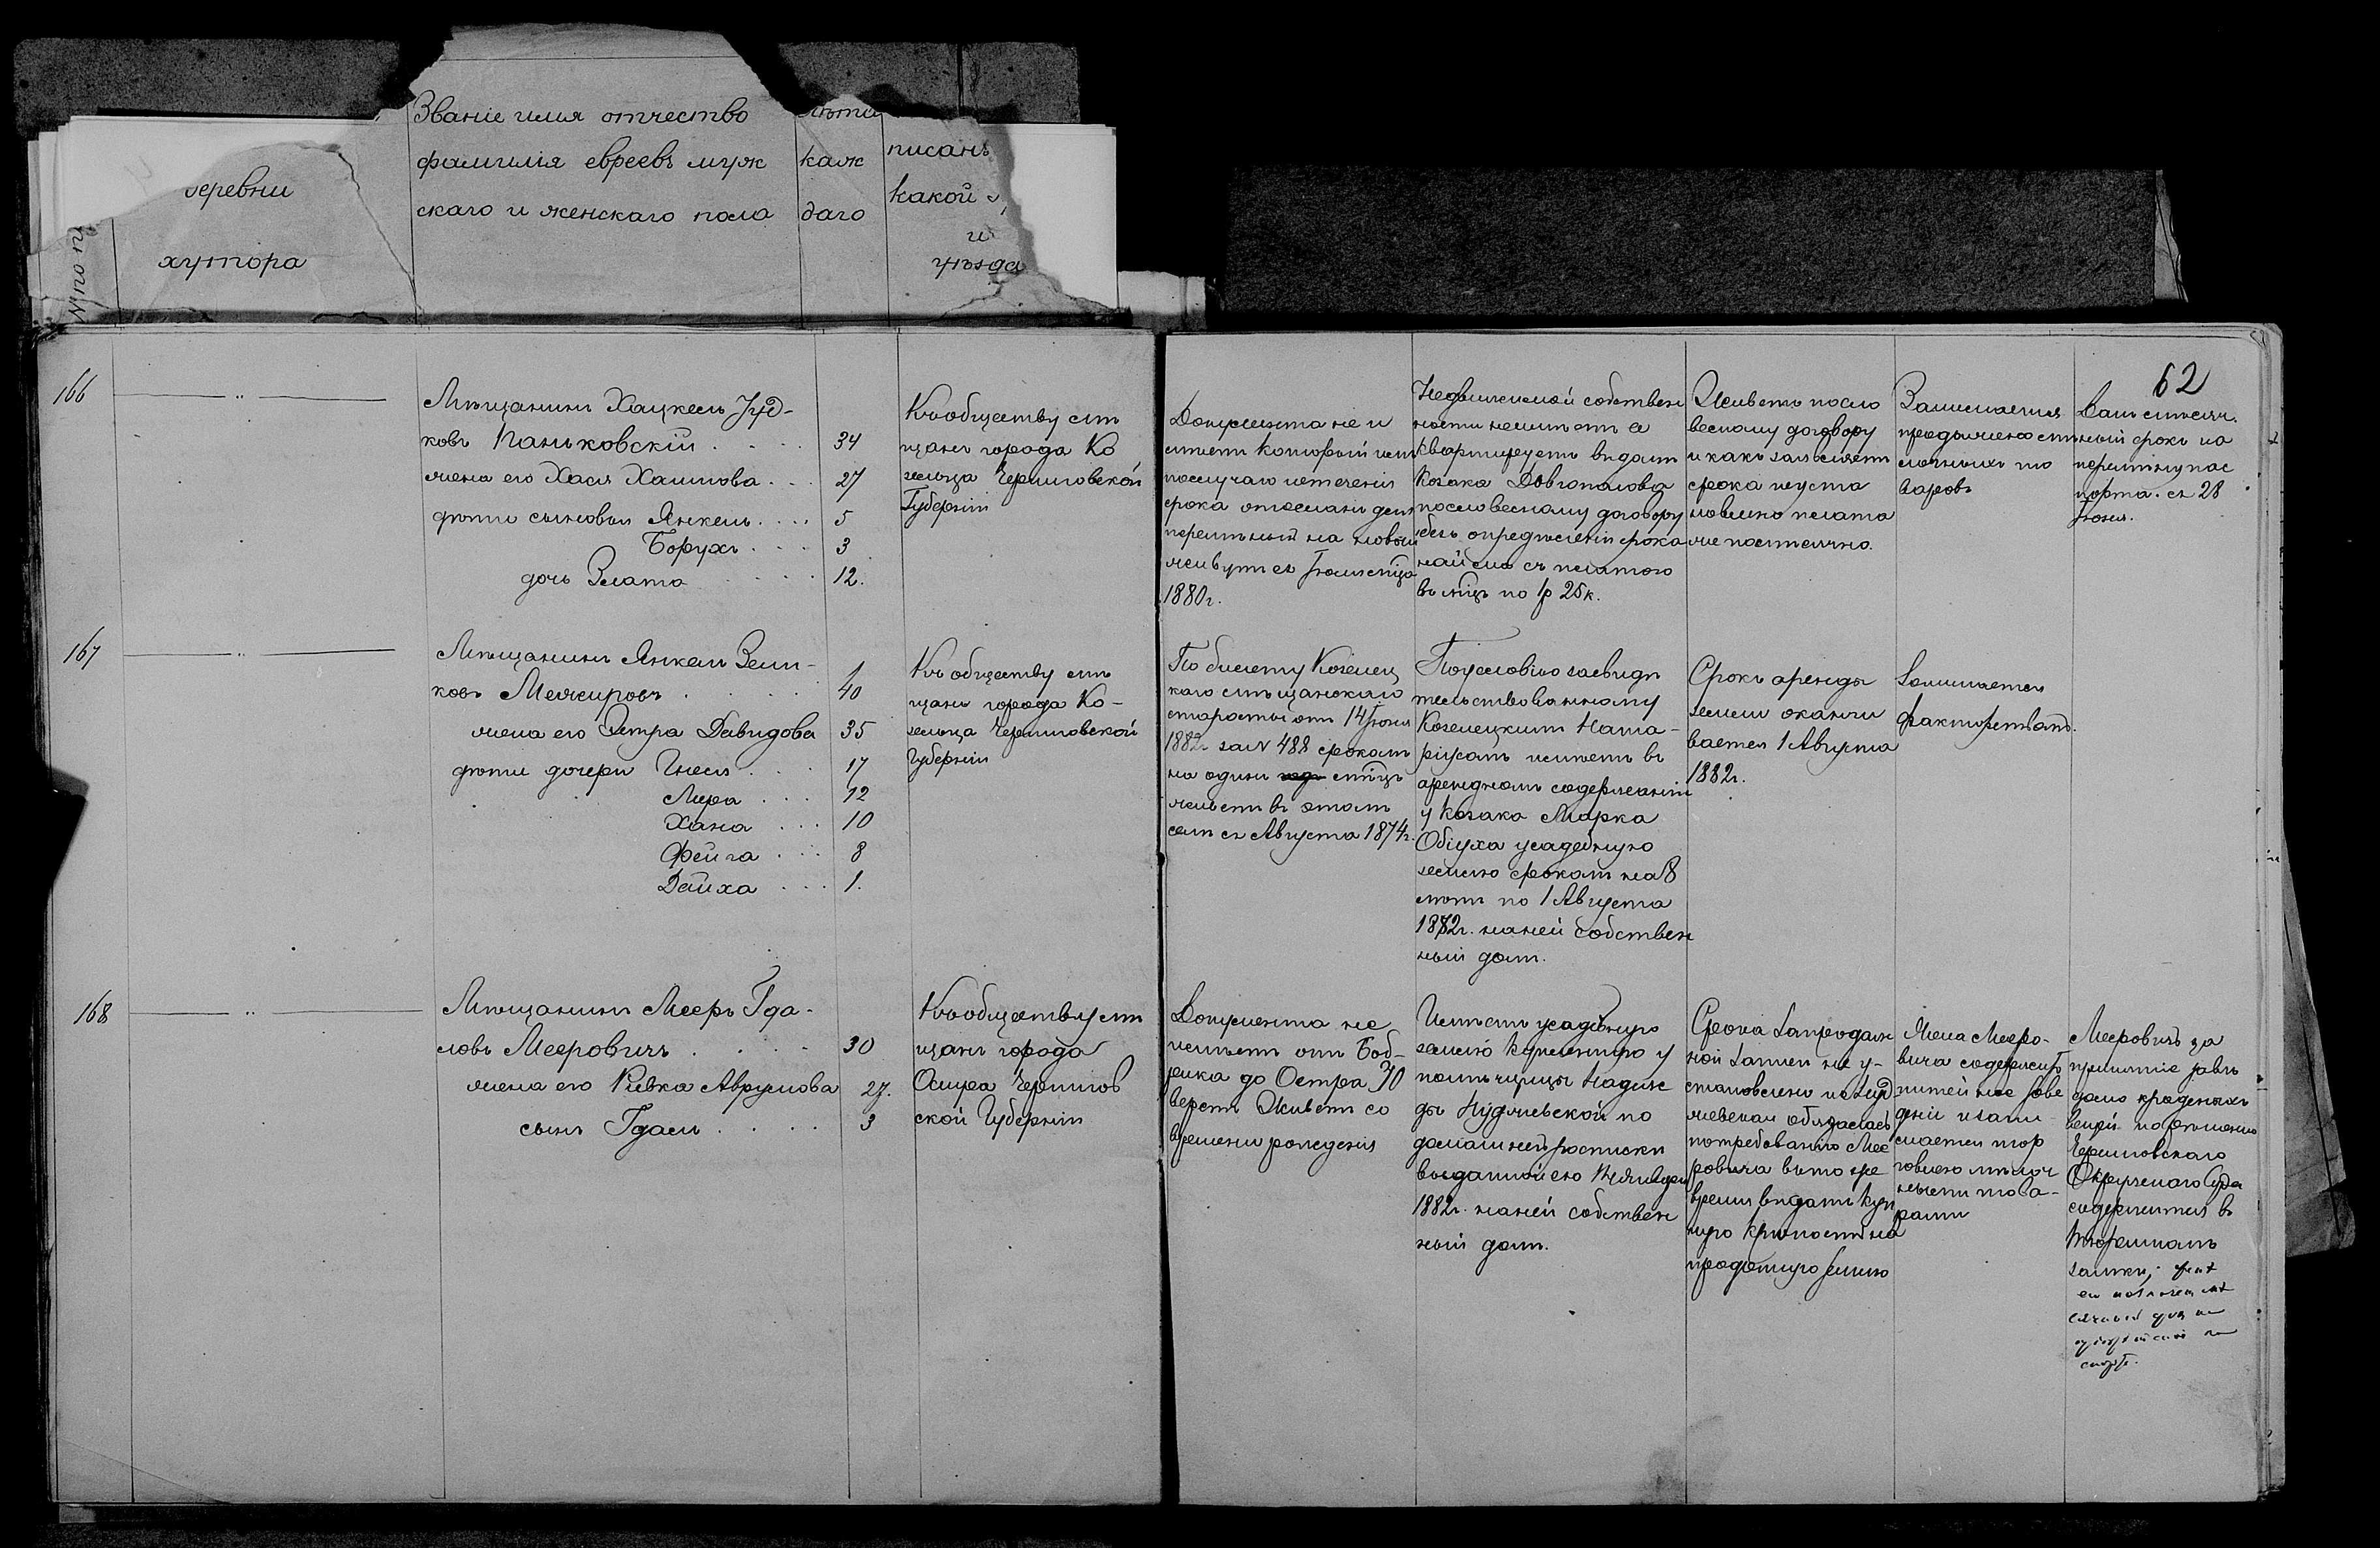 Званіе имя отчество
фамилія евреевъ муж
скаго и женскаго пола
лѣта
каж
даго
писанъ
какой
и
уѣзда
деревни
хутора
№ по п
62
166
Мѣщанинъ Хацкель Јуд-
ковъ Паньковскій 34
жена его Хася Хаимова 27
дѣти сыновья Янкель 5
Борухъ 3
дочь Злата 12.
Къ обществу мѣ
щанъ города Ко
зельца Черниговской
Губерніи
Документа не и
мѣетъ который имъ
послучаю истеченія
срока отосланъ для
перемѣны на новый
живутъ съ
1880г.
Недвижимой собствен
ности неимѣетъ а
квартируетъ въ домѣ
Козака Довгополова
послoвесному договору
безъ опредѣленія срока
найма съ платою
въ мѣцъ по 1р 25к.
Живетъ посло
весному договору
и какъ заявляетъ
срока неуста
новлено плата
же помѣсячно.
Занимается
продажею мѣ
лочныхъ то
варовъ
Данъ мѣсяч.
ный срокъ на
перемѣну пас
порта. съ 28
Іюня.
167
Мѣщанинъ Янкель Зели-
ковъ Межировъ 40
жена его Эстра Давидова 35
дѣти дочери Гнеся 17
Мира 12
Хана 10
Фейга 8
Дайха 1.
Къ обществу мѣ
щанъ города Ко-
зельца Черниговской
Губерніи
По билету Козелец
каго мѣщанскаго
старосты отъ 14 Іюня
1882г за № 488 срокомъ
на одинъ годъ мѣцъ
живетъ въ этомъ
селѣ съ Августа 1874г.
По условію засвидѣ
тельствованному
Козелецкимъ Нота-
ріусомъ имѣетъ въ
арендномъ содержаніи
у козака Марка
Обіуха усадебную
землю срокомъ на 8
лѣтъ по 1 Августа
1882г. на ней собствен
ный домъ.
Срокъ аренды
земли оканчи
вается 1 Августа
1882г.
Занимается
факторствомъ.
168
Мѣщанинъ Мееръ Гда-
ловъ Мееровичъ 30
жена его Ривка Аврумова 27.
сынъ Гдаль 3
Къ обществу мѣ
щанъ города
Остра Чернигов
ской Губерніи
Документа не
имѣетъ отъ Боб-
рика до Остра 70
верстъ Живетъ со
времени рожденія
Имѣетъ усадебную
землю купленную у
помѣщицы Надеж
ды по
домашней росписки
выданной ею Января
1882г. на ней собствен
ный домъ.
Срока запродаж
ной записи не у-
становлено
обязалась
потребованію Мее
ровича въ то же
время выдать куп
чую крѣпость на
проданную землю
Жена Мееро-
вича содержитъ
питейное заве
деніе и зани
мается тор
говлею мѣлоч
ными това-
рами
Мееровичъ за
принятіе завѣ
домо краденыхъ
вещей по рѣшенію
Черниговскаго
Окружнаго Суда
содержится въ
тюремномъ
замкѣ;